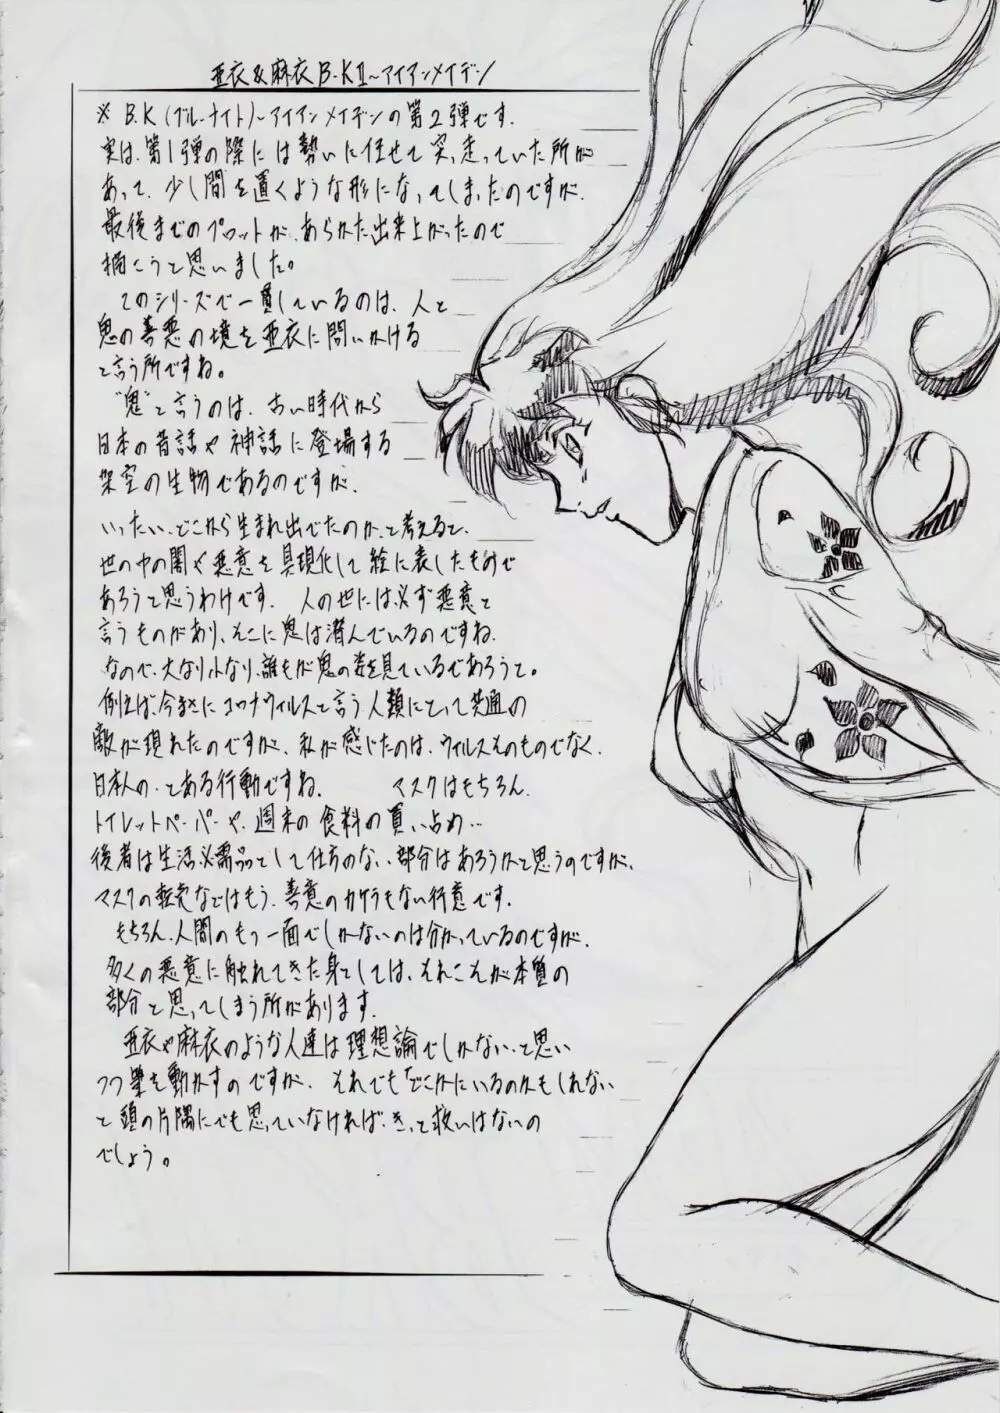 亜衣&麻衣B.KⅡ~アイアンメイデン
※ B.K(ブルーナイト)~アイアンメイデンの第2弾です.
実は、第1弾の際には勢いに任せて突っ走っていた所が
あって、少し間を置くような形になってしまったのですが、
最後までのプロットが、あらかた出来上がったので
描こうと思いました。
このシリーズで一貫しているのは、人と
鬼の善悪の境を亜衣に問いかける
と言う所ですね。
"鬼"と言うのは、古い時代から
日本の昔話や神話に登場する
架空の生物であるのですが、
いったい、どこから生まれ出でたのか、と考えると、
世の中の闇や悪意を具現化して絵に表したもので
あろうと思うわけです. 人の世には必ず悪意と
言うものがあり、そこに鬼は潜んでいるのですね.
なので、大なり小なり、誰もが鬼の姿を見ているであろうと。
例えば、今まさにコロナウィルスと言う人類にとって共通の
敵が現れたのですが、私が感じたのは、ウィルスそのものでなく、
日本人の、とある行動ですね. マスクはもちろん、
トイレットペーパーや、週末の食料の買い占め…
後者は生活必需品として仕方のない部分はあろうかと思うのですが、
マスクの転売などはもう、善意のカケラもない行意です.
もちろん、人間のもつ一面でしかないのは分かっているのですが、
多くの悪意に触れてきた身としては、それこそが本質の
部分と思ってしまう所があります.
亜衣や麻衣のような人達は理想論でしかない、と思い
つつ筆を動かすのですが、それでも「どこかにいるのかもしれない
と頭の片隅にでも思っていなければ、きっと救いはないの
でしょう。